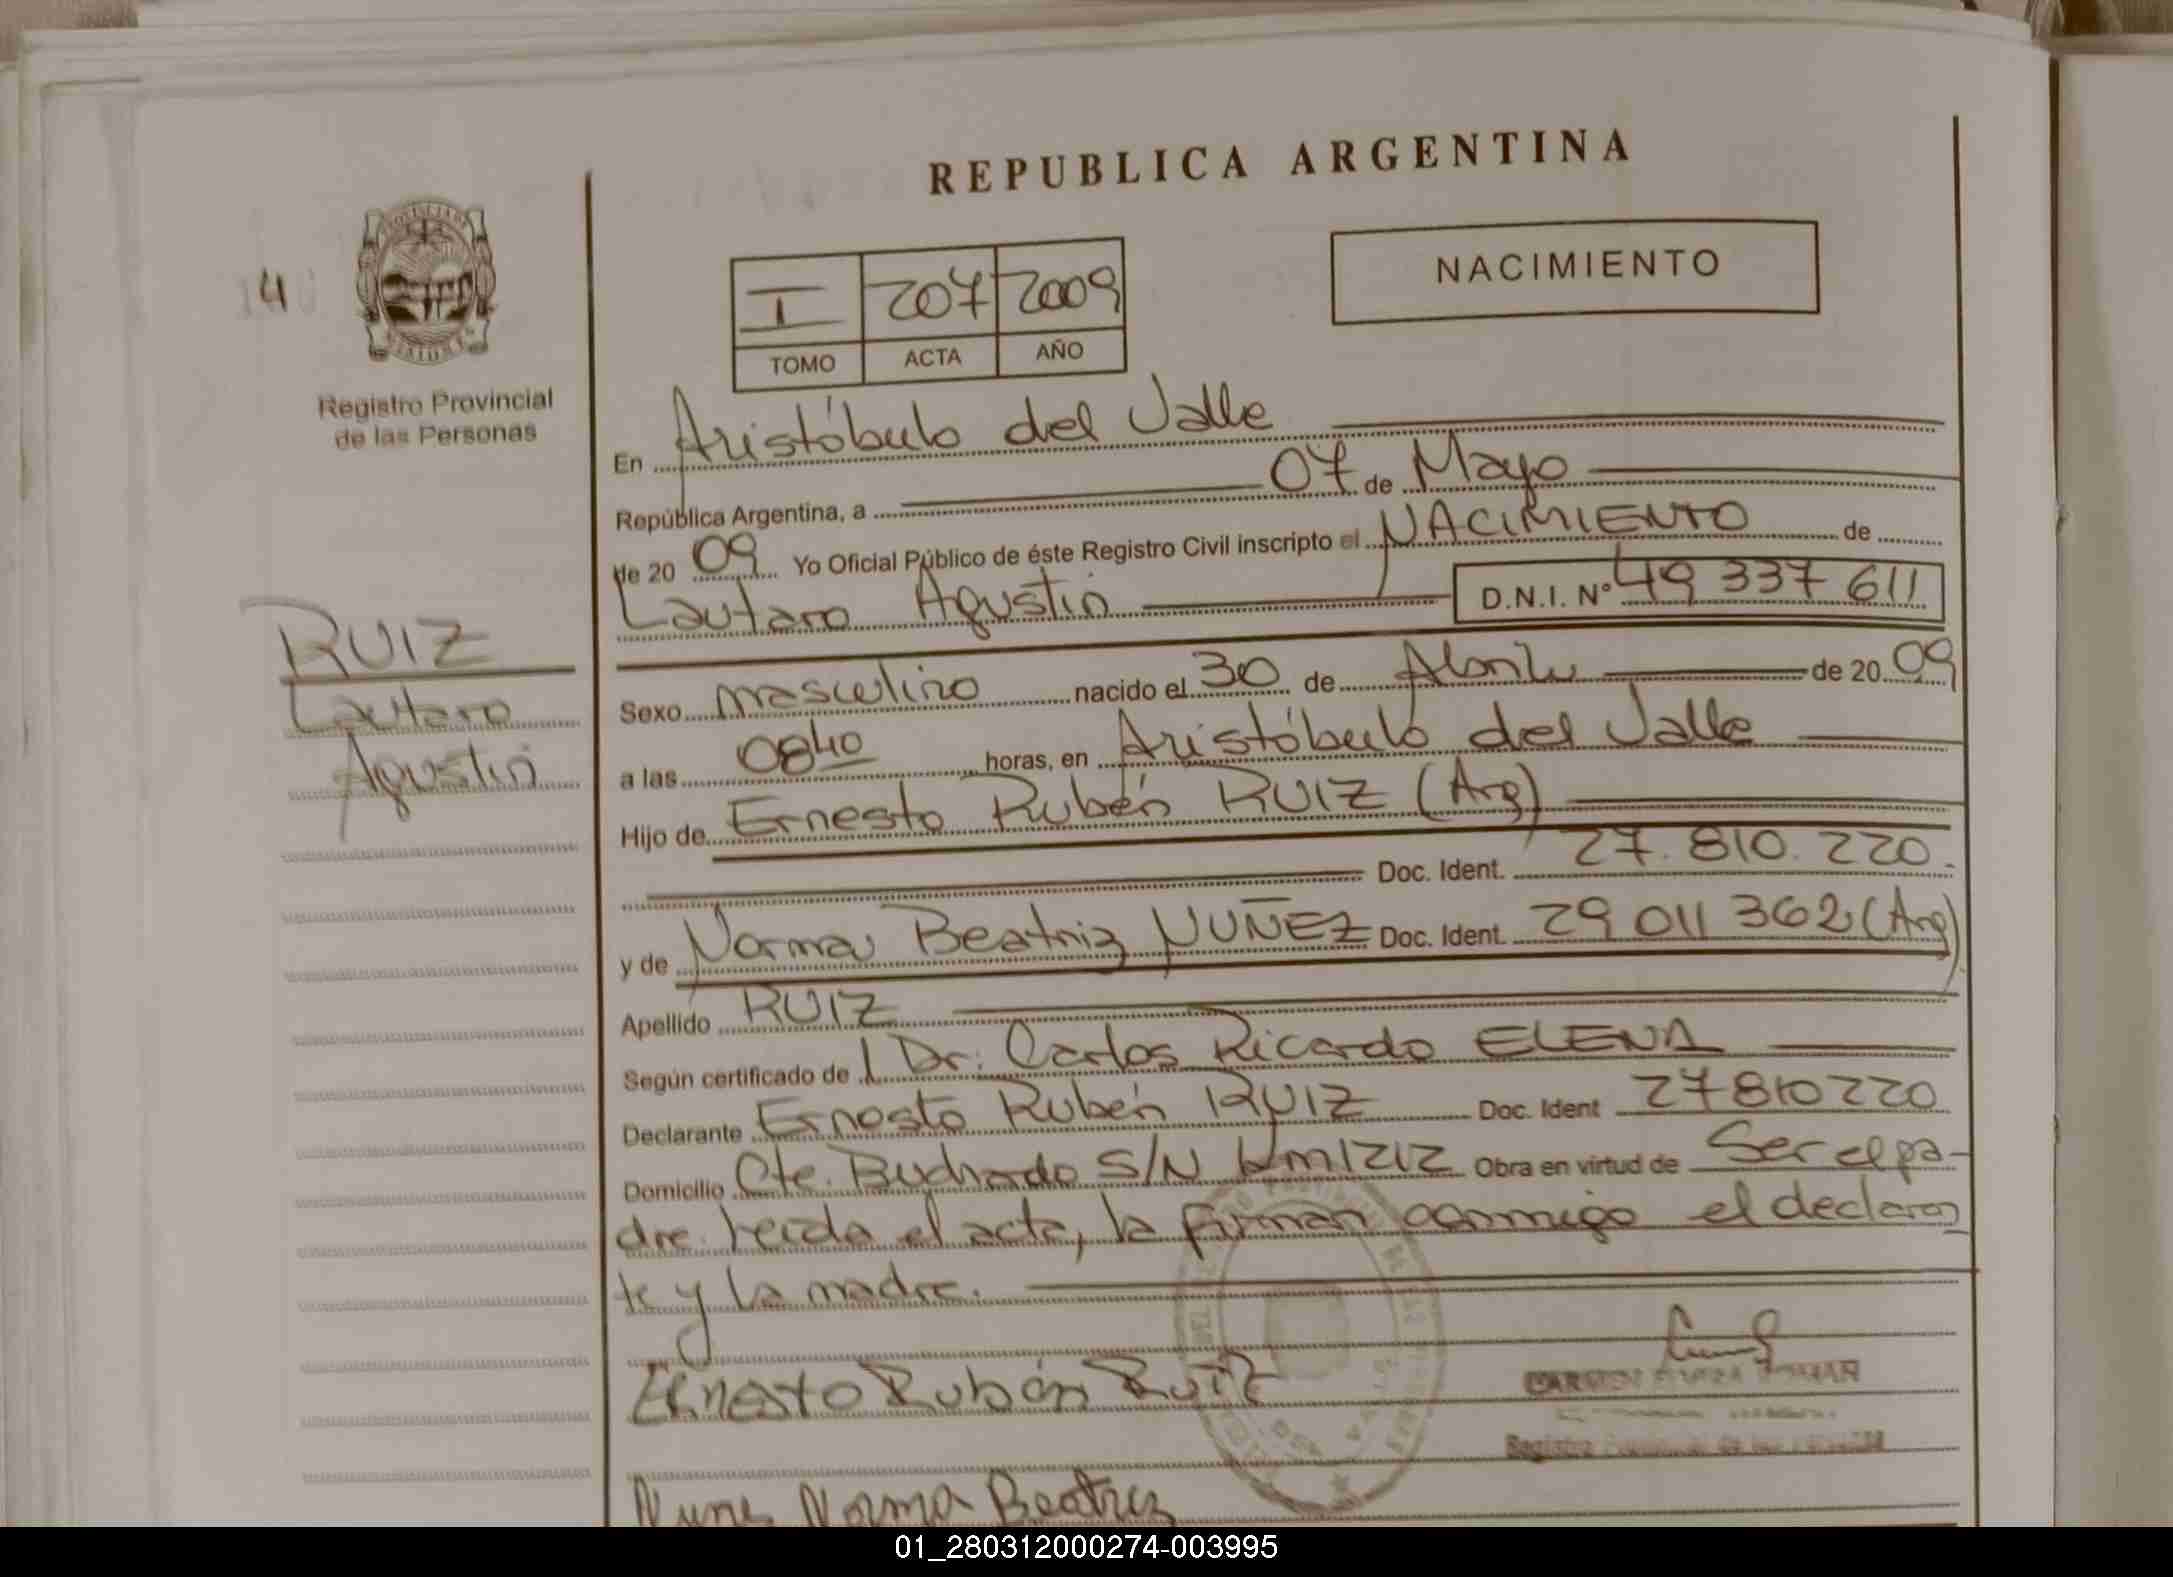 REPUBLICA ARGENTINA
NACIMIENTO
4
I 207 2009
TOMO ACTA AÑO
Registro Provincial
de las Personas
En Aristóbulo del Valle
República Argentina, a 07 de Mayo
de 20 09 Yo Oficial Público de éste Registro Civil inscripto el NACIMIENTO de
Lautaro Agustin D.N.I. Nº 49 337 611
RUIZ
Lautaro
Agustin
Sexo masculino nacido el 30 de Abril de 20 09
a las 08 40 horas, en Aristóbulo del Valle
Hijo de Ernesto Rubén RUIZ (Arg)
Doc. Ident. 27.810.220.
y de Norma Beatriz NUÑEZ Doc. Ident. 29 011 362 (Arg)
Apellido RUIZ
Según certificado de Dr. Carlos Ricardo ELENA
Declarante Ernesto Rubén RUIZ Doc. Ident 27810220
Domicilio Cte. Buchardo S/N Km1212 Obra en virtud de Ser el pa-
dre. Leida el acta, la firman conmigo el declaran
te y la madre.
Ernesto Rubén Ruiz
Registro Provincial de las
Norma Beatriz
01_280312000274-003995